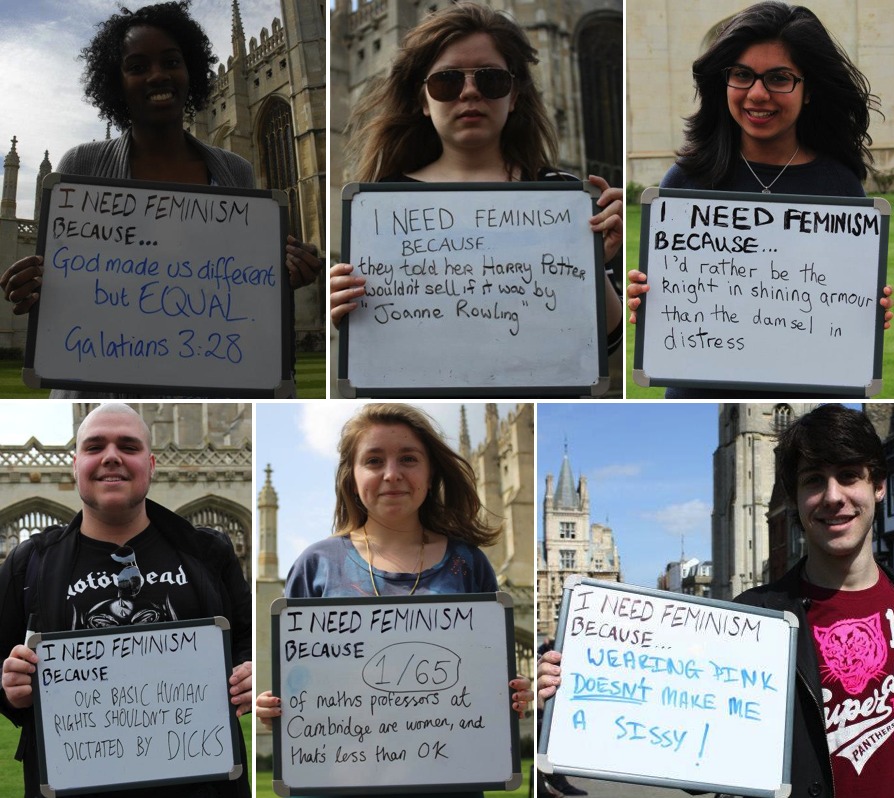 I NEED FEMINISM
BECAUSE...
God made us different
but EQUAL.
Galatians 3:28
I NEED FEMINISM
BECAUSE...
they told her Harry Potter
wouldn't sell if it was by
"Joanne Rowling"
I NEED FEMINISM
BECAUSE...
I'd rather be the
Knight in shining armour
than the damsel in
distress
motörhead
I NEED FEMINISM
BECAUSE
OUR BASIC HUMAN
RIGHTS SHOULDN'T BE
DICTATED BY DICKS
I NEED FEMINISM
BECAUSE 1/65
of maths professors at
Cambridge are women, and
that's less than OK
I NEED FEMINISM
BECAUSE...
WEARING PINK
DOESN'T MAKE ME
A SISSY!
Super
PANTHERS